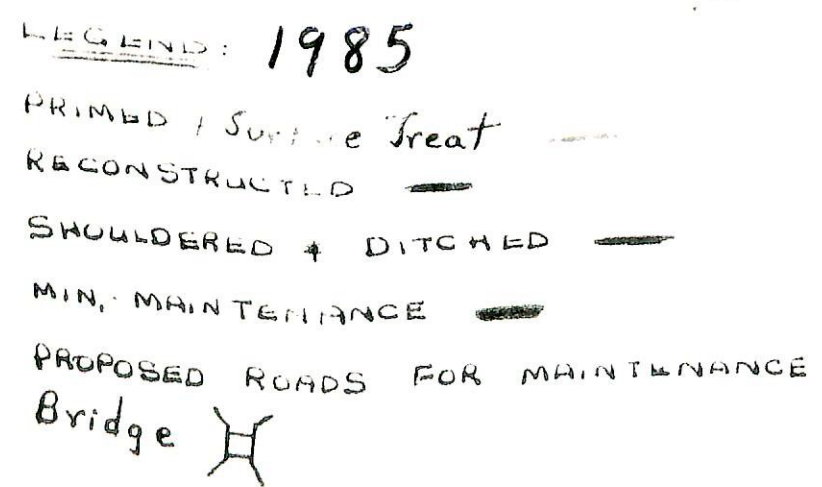 LEGEND: 1985
PRIMED / Surface Treat
RECONSTRUCTED
SHOULDERED & DITCHED
MIN. MAINTENANCE
PROPOSED ROADS FOR MAINTENANCE
Bridge